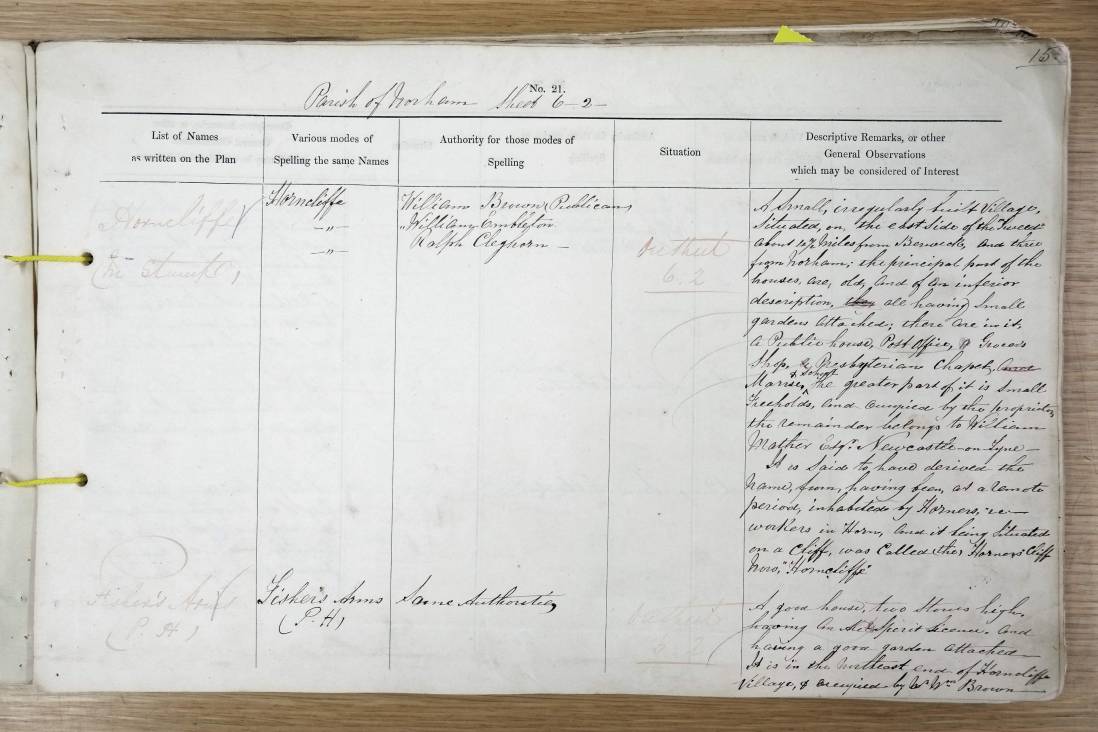 15
No. 21.
Parish of Norham Sheet 6-2-
List of Names
as written on the Plan
Various modes of
Spelling the same Names
Authority for those modes of
Spelling
Situation
Descriptive Remarks, or other
General Observations
which may be considered of Interest
Horncliffe
Horncliffe
-"-
-"-
William Brown, Publican,
" William Embleton
Ralph Cleghorn -
On sheet
6.2
A Small, irregularly built Village,
Situated, on, the east side of the "Tweed"
about 4½ miles from Berwick, and three
from Norham; the principal part of the
houses, are, old, and of an inferior
description, they all having small
gardens attached; there are in it,
a Public house, Post Office, & Grocers
Shop, & Presbyterian Chapel,
Manse, & School The greater part of it is Small
Freeholds, and occupied by the proprietors,
the remainder belongs to William
Mather Esqr. Newcastle-on-Tyne-
It is Said to have derived the
Name, from, having been, at a remote
period, inhabited by Horners, i.e-
workers in Horn, and it being Situated
on a Cliff, was called the Horners Cliff
Now, "Horncliffe"
Fisher's Arms
(P. H)
Fisher's Arms
(P. H)
Same Authorities
On sheet
6.2
A good house, two Stories high,
having an Ale & Spirit licence. and
having a good garden attached
It is in the Northeast end of Horncliffe
Village, & occupied by Wm. Brown